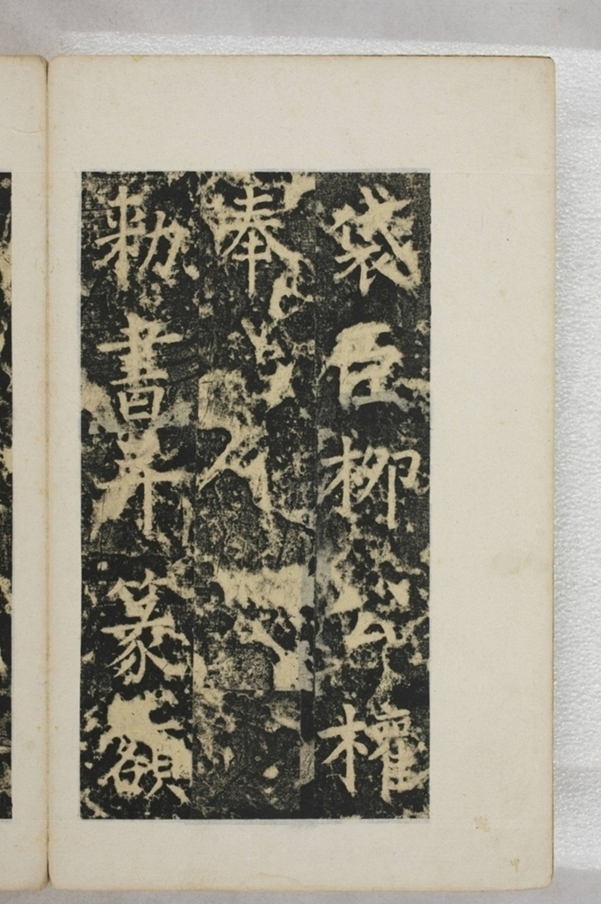 袋臣柳公權
奉
勑書并篆額